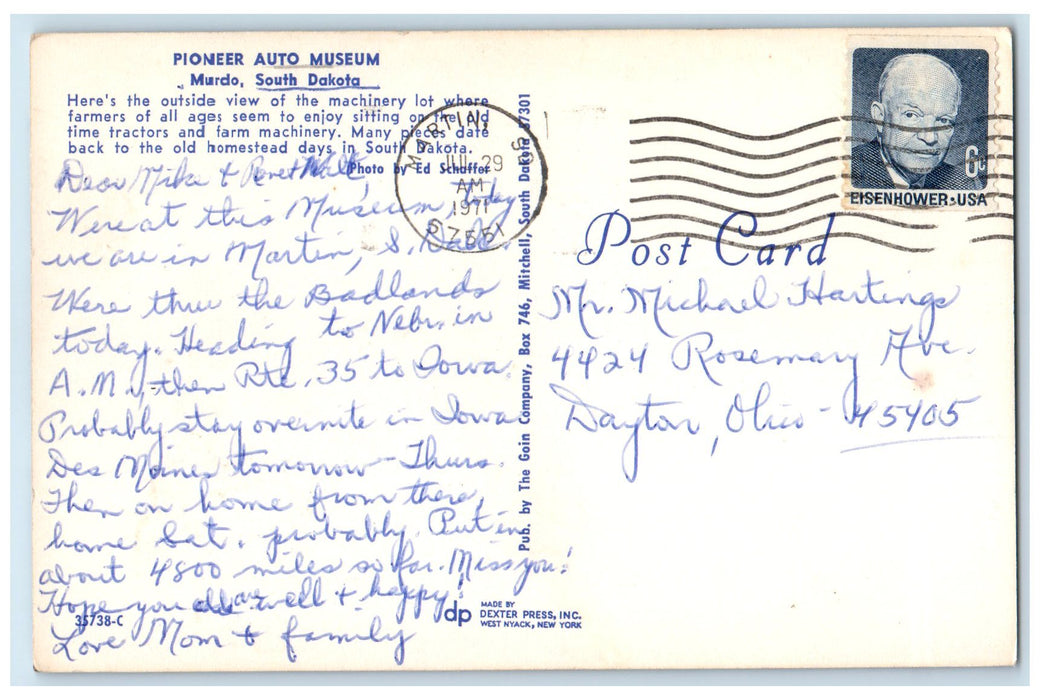 PIONEER AUTO MUSEUM
Murdo, South Dakota
Here's the outside view of the machinery lot where
farmers of all ages seem to enjoy sitting on the old
time tractors and farm machinery. Many pieces date
back to the old homestead days in South Dakota.
Photo by Ed Schaffer
Dear Mike +
Were at this Museum, today
we are in Martin, S. Dak.
Were thru the Badlands
today. Heading to Nebr. in
A.M., then Rte. 35 to Iowa.
Probably stay overnite in Iowa
Des Moines tomorrow - Thurs.
Then on home from there,
home Sat. probably. Put in
about 4800 miles so far. Miss you!
Hope you all are well + happy!
Love Mom + family
35738-C
Pub. by The Goin Company, Box 746, Mitchell, South Dakota 57301
dp
MADE BY
DEXTER PRESS, INC.
WEST NYACK, NEW YORK
MARTIN, SD
JUL 29
AM
1971
57551
6c
EISENHOWER·USA
Post Card
Mr. Michael Hartings
4424 Rosemary Ave.
Dayton, Ohio - 45405